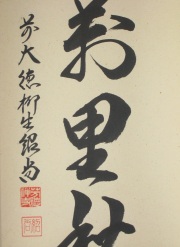 萬里秋
前大徳柳生紹尚